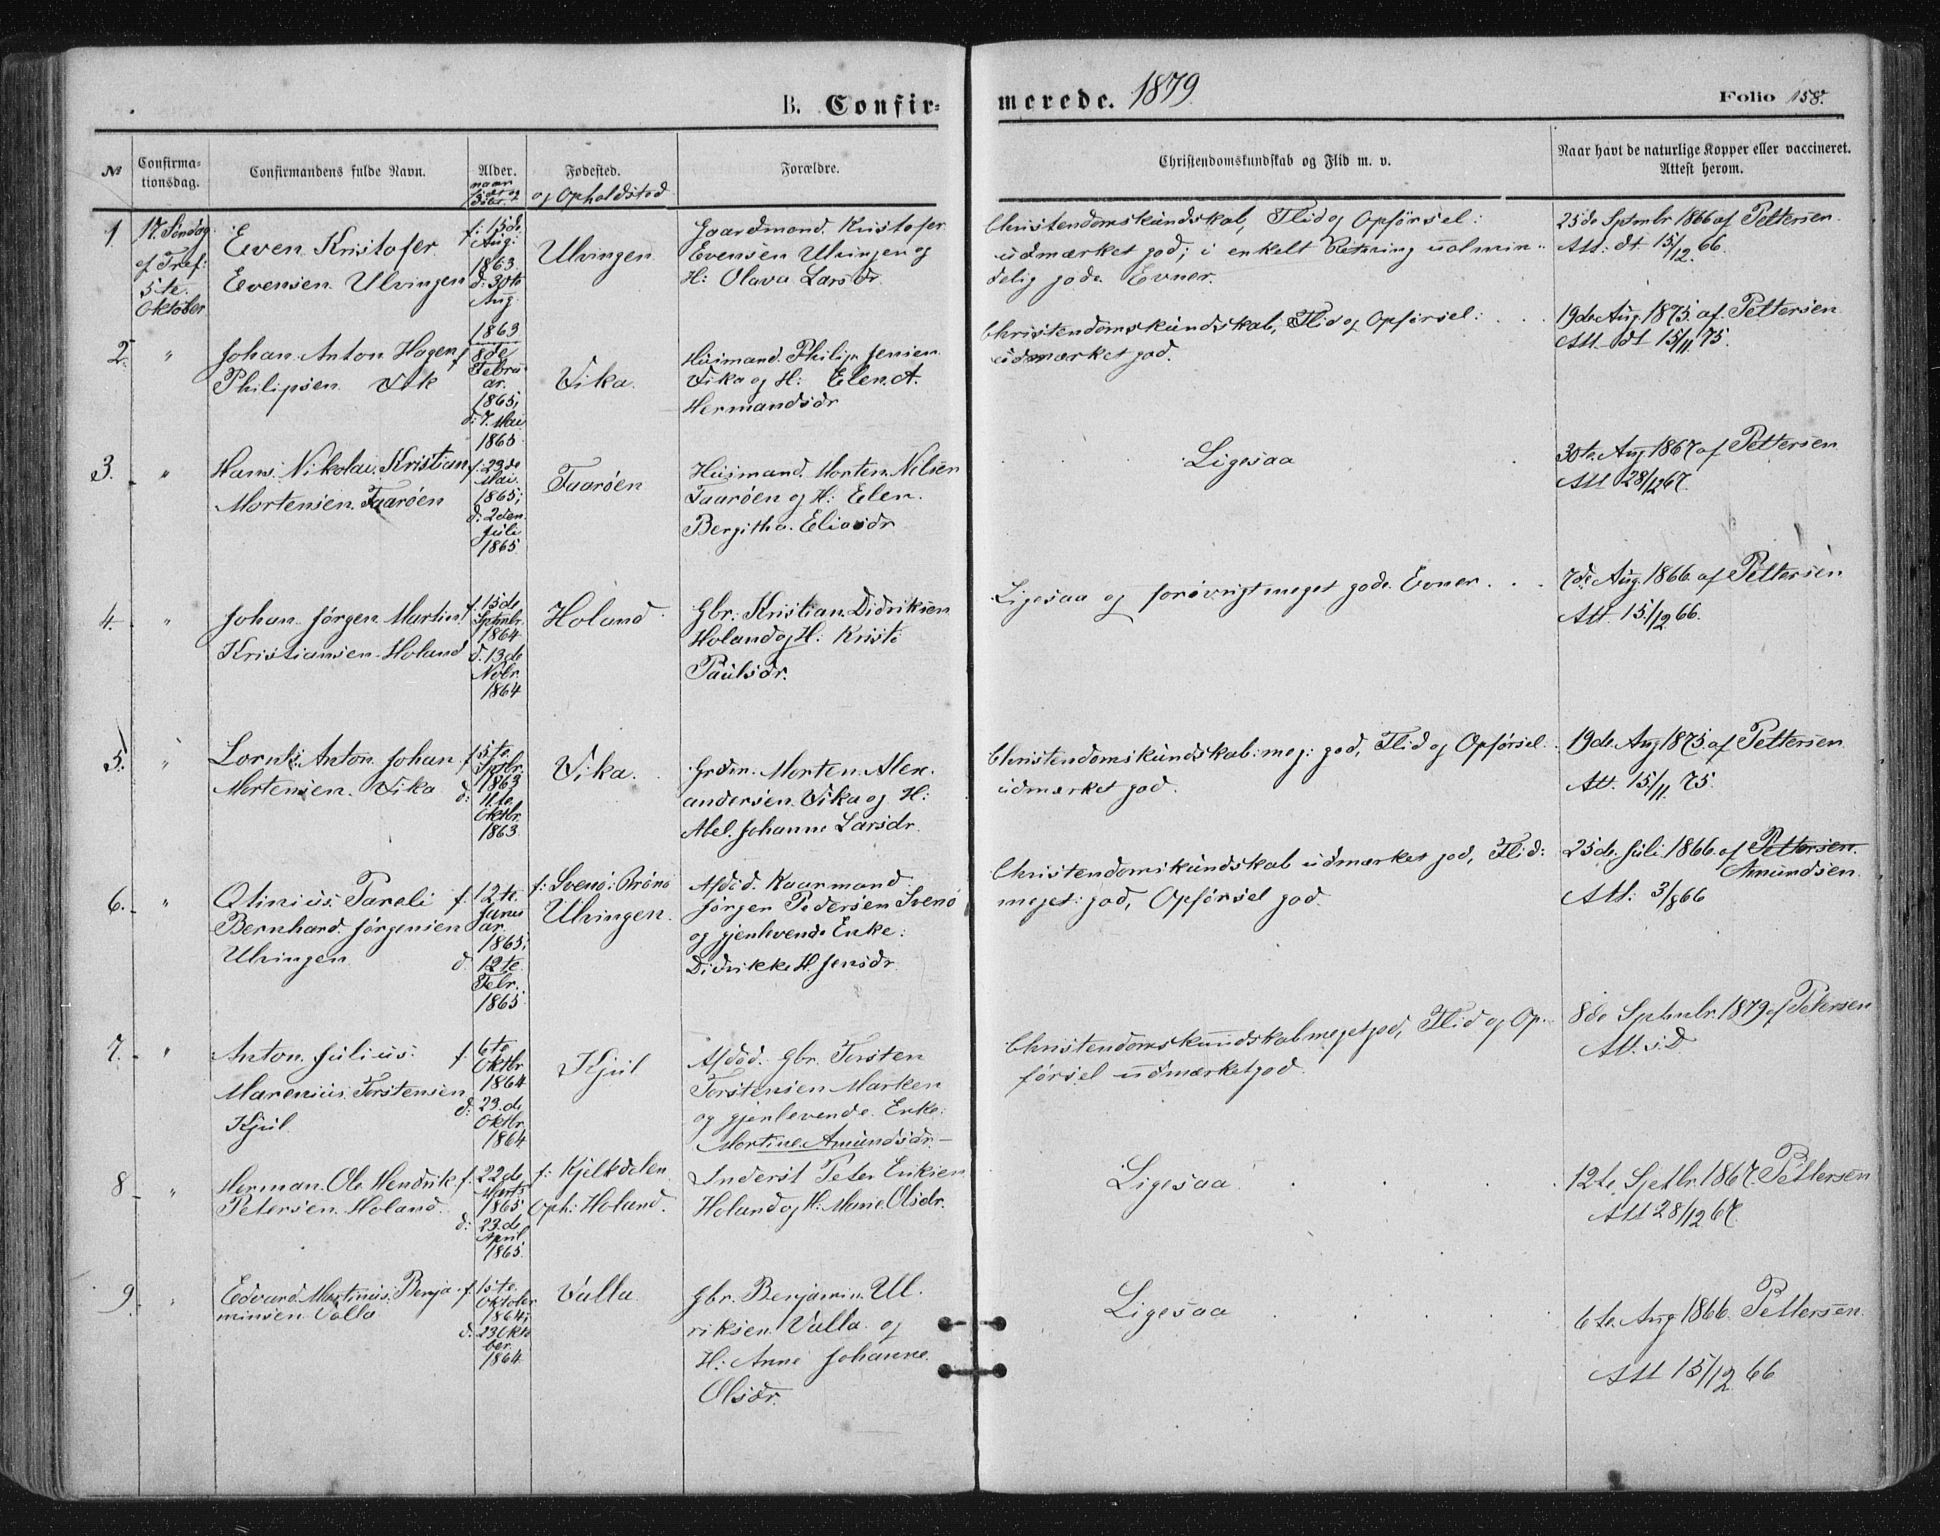 B. Confir-
merede. 1879
Folio 158.
No
Confirma-
tionsdag.
Confirmandens fulde Navn.
Alder.
naar
født og
døbt.
Fødested.
og Opholdsted
Forældre.
Christendomskundskab og Flid m. v.
Naar havt de naturlige Kopper eller vaccineret.
Attest herom.
1
17. Søndag
af Tref:
5te
Oktober
Even Kristofer
Evensen Ulvingen
f: 15de
Aug:
1863
d: 30te
Aug.
1863
Ulvingen
Gaardmand Kristofer
Evensen Ulvingen og
H: Olava Larsdr
Christendomskundskab, Flid og Opførsel:
udmærket god; i enkelt Retning ualmin-
delig gode Evner.
25de Septmbr 1866 af Pettersen
Att: dt 15/12 66.
2.
"
Johan Anton Hagen
Philipsen Vik
f 8de
Febru
ar.
1865;
d: 7. Mai
1865
Vika.
Husmand Philip Jensen
Vika og H: Elen A.
Hermandsdr
Christendomskundskab, Flid og Opførsel:
udmærket god.
19de Aug. 1875. af Pettersen
Att. dt 15/11 75.
3.
"
Hans Nikolai Kristian
Mortensen Taarøen
f. 23de
Mai.
1865;
d: 2den
Juli
1865
Taarøen
Husmand Morten Nilsen
Taarøen og H: Elen
Bergitha Eliasdr
Ligesaa
30te Aug 1867 af Pettersen
Att 28/12 67.
4.
"
Johan Jørgen Martin
Kristiansen Holand
f. 15de
Sptmbr.
1864
d. 13de
Nobr.
1864
Holand
Gbr: Kristian Didriksen
Holand og H: Kristi
Paulsdr.
Ligesaa og forøvrigt meget gode Evner.
7de Aug. 1866 af Pettersen
Att. 15/12 66.
5.
"
Lornts Anton Johan
Mortensen Vika
f 5te
Sptbr.
1863
d: 11te
Oktbr.
1863
Vika.
Grdm. Morten Alex-
andersen Vika og H:
Abel Johanne Larsdr.
Christendomskundskab: meg: god, Flid og Opførsel:
udmærket god.
19de Aug 1875. af Pettersen
Att. 15/11 75.
6.
"
Otinius Pareli
Bernhard Jørgensen
Ulvingen
f. 12te
Janu
ar.
1865;
d: 12te
Febr.
1865
f: Svenø: Brønø
Ulvingen.
Afdød. Kaarmand
Jørgen Pedersen Svenø
og gjenlevende Enke:
Didrikke H. Jensdr.
Christendomskundskab udmærket god, Flid:
meget: god, Opførsel god.
25de Juli 1866 af Pettersen.
Amundsen
Att: 3/8 66
7.
"
Anton Julius
Marenius Torstensen
Kjul
f. 6te
Oktbr
1864
d: 23.de
Oktbr.
1864
Kjul
Afdød. Gbr Torsten
Torstensen Marken
og gjenlevende Enke:
Mortine Amundsdr.
Christendomskundskab meget god, Flid og Op-
førsel udmærket god.
8de Sptmbr 1879 af Petersen
Att. s. D
8
"
Herman Ole Hendrik
Petersen Holand.
f. 22de
Marts
1865,
d: 23.de
April
1865.
f: Kjelkdelen
Oph: Holand.
Inderst Peter Eriksen
Holand og H: Marie Olsdr.
Ligesaa
12te. Septbr 1867 Pettersen
Att 28/12 67.
9
"
Edvard Martinus Benja-
minsen Valla
f. 15te
Oktober
1864;
d: 23 Okto
ber.
1864
Valla
Gbr. Benjamin Ul-
riksen Valla og
H: Anne Johanne
Olsdr.
Ligesaa
6te. Aug 1866. Pettersen
Att 15/12 66